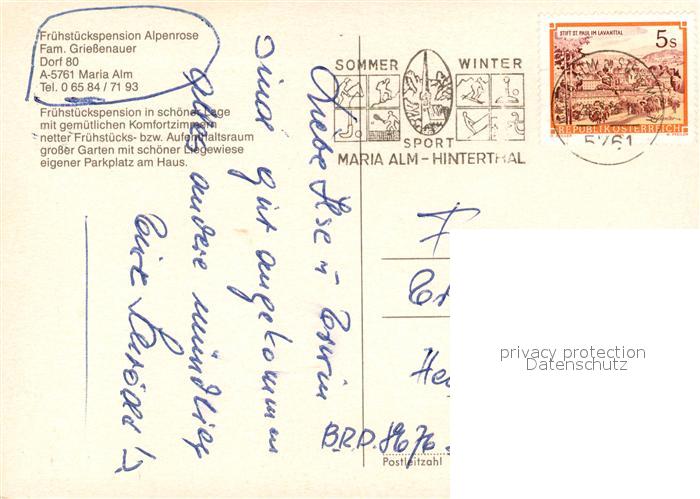 Frühstückspension Alpenrose
Fam. Grießenauer
Dorf 80
A-5761 Maria Alm
Tel. 0 65 84 / 71 93
Frühstückspension in schöner Lage
mit gemütlichen Komfortzimmern
netter Frühstücks- bzw. Aufenthaltsraum
großer Garten mit schöner Liegewiese
eigener Parkplatz am Haus.
SOMMER WINTER
SPORT
MARIA ALM - HINTERTHAL
STIFT ST. PAUL IM LAVANTTAL
5 s
REPUBLIK ÖSTERREICH
5761
Liebe Ilse u. Erwin
sind gut angekommen
alles andere mündlich
Eure
F
Er
He
B.R.D. 8676
Postleitzahl
privacy protection
Datenschutz